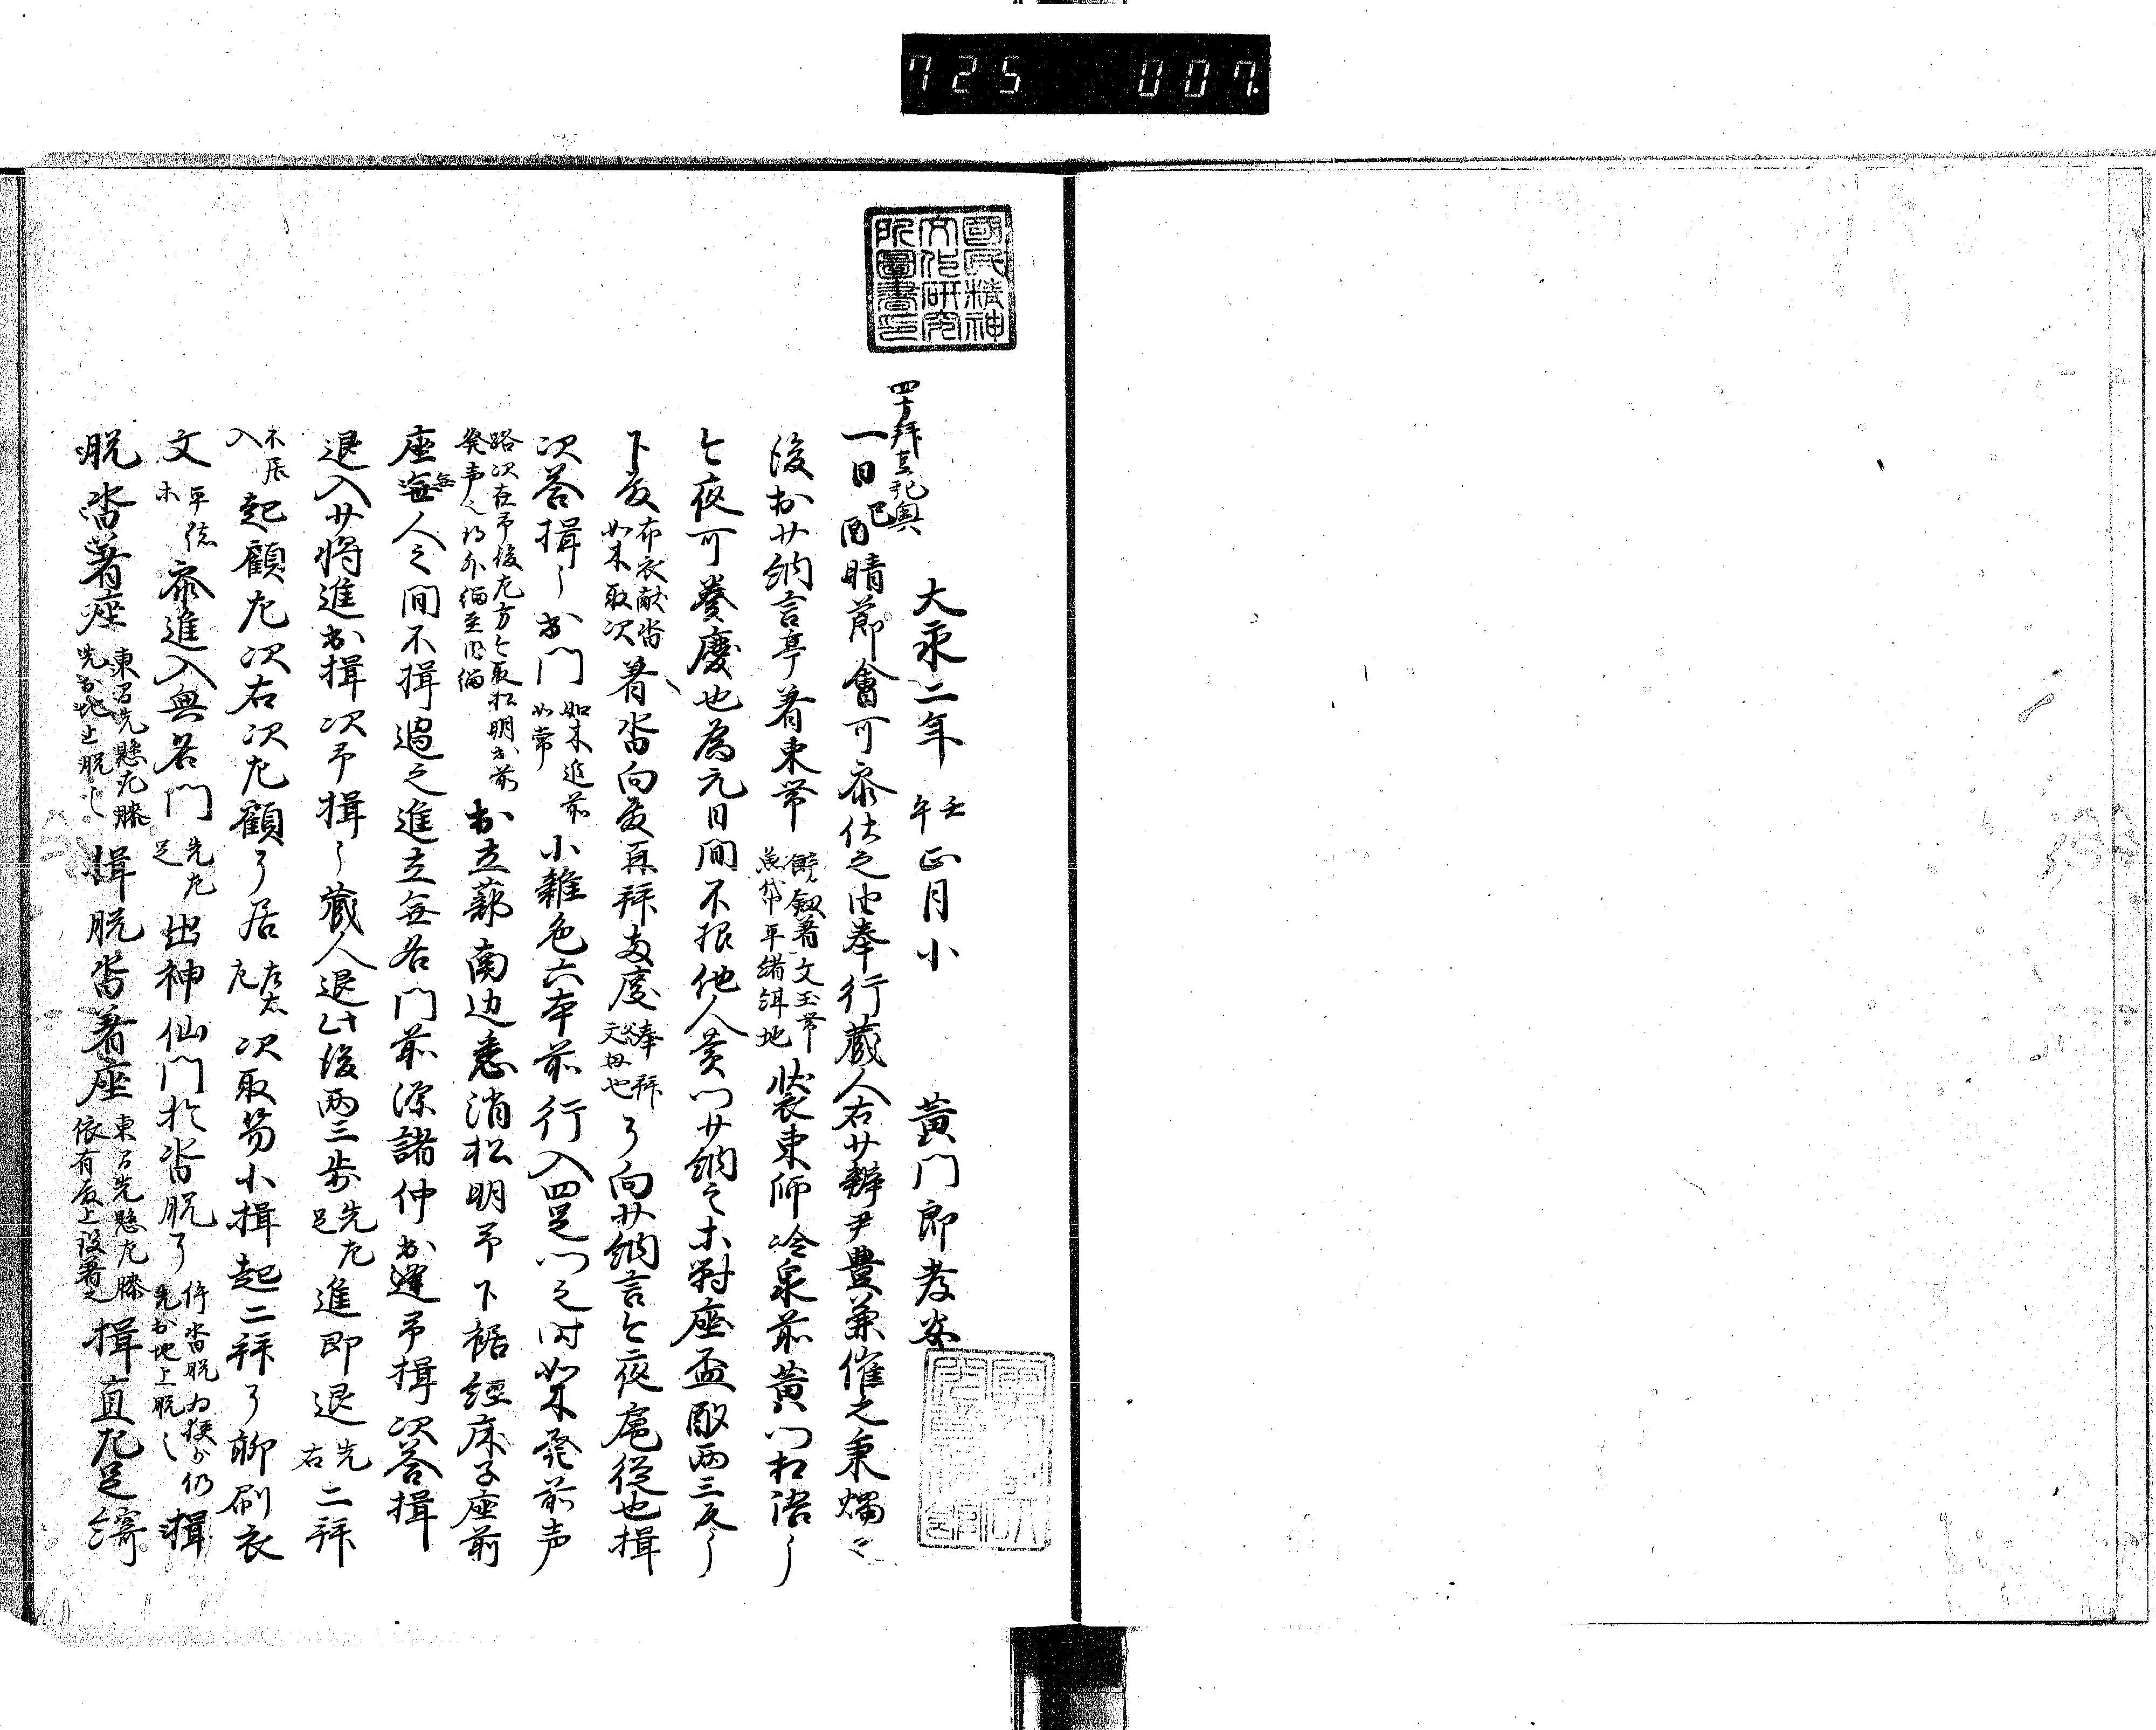 725 007.
國民精神
文化研究
所圖書印
大永二年 壬午 正月小 黄門郎孝安
四方拝在記奥
一日 己酉 晴節會可参仕之由奉行蔵人右少辨尹豊兼催之秉燭々
後於少納言亭着束帯 餝剱着文玉帯魚袋平緒紺地 装束師冷泉前黄門相語了
今夜可奏慶也為元日間不招他人黄門少納言等対座盃酌両三反了
下殿 布衣献沓如木取次 着沓向殿再拝両度 奉拝父母也 了向少納言今夜扈従也揖
次答揖了出門 如木進前如常 小雑色六本前行入四足門之時如木発前声
路次在予後左方今取松明出前発声之約外編至陣編 出立蔀南辺悉消松明予下裾経床子座前
座毎人之間不揖過之進立無名門前深諸仲出逢予揖次答揖
退入少将進出揖次予揖了蔵人退此後両三歩 先左足 進即退 先右 二拝
不居入 起顧左次右次左顧了居 左右左 次取笏小揖起二拝了聊刷衣
文 平緒等 参進入無名門 先左足 出神仙門於沓脱了 件沓脱力狭少仍先於地上脱之 揖
脱沓着座 東面先懸左膝先於地上脱之 揖脱沓着座 東面先懸左膝依有便上段著之 揖直左足寄